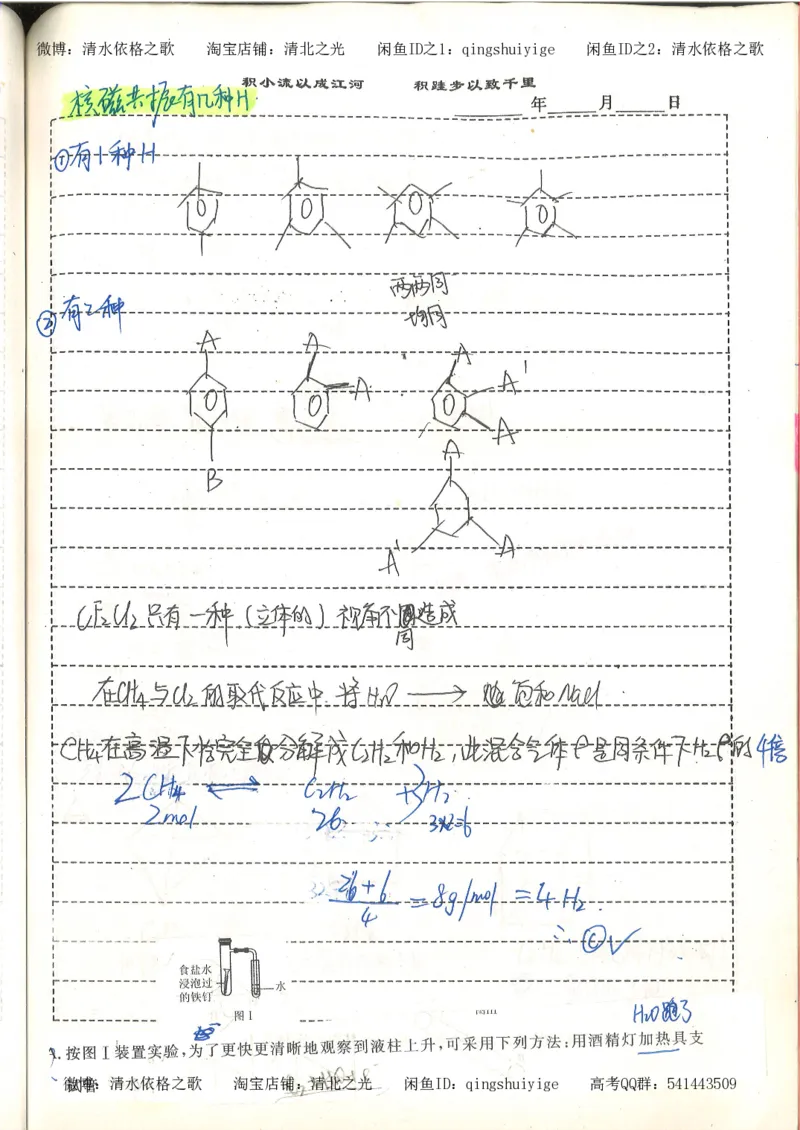 微博：清水依格之歌 淘宝店铺：清北之光 闲鱼ID之1：qingshuiyige 闲鱼ID之2：清水依格之歌
积小流以成江河 积跬步以致千里
核磁共振有几种H
年 月 日
①有1种H
两两同
均同
②有2种
A A A A'
A
A
B
A
A' A
CF2Cl2只有一种（立体的）视角不同造成
在CH4与Cl2的取代反应中，将H2O ⟶ 饱和NaCl
CH4在高温下恰完全分解成C2H2和H2，此混合气体ρ是同条件下H2ρ的4倍
2CH4 ⇌ C2H2 + 3H2
2mol 26 3×2=6
26+6
4
=8g/mol =4H2
∴ⓒ✓
食盐水
浸泡过
的铁钉
水
图1
H2O跑了
A.按图Ⅰ装置实验,为了更快更清晰地观察到液柱上升,可采用下列方法:用酒精灯加热具支
微博：清水依格之歌 淘宝店铺：清北之光 闲鱼ID：qingshuiyige 高考QQ群：541443509